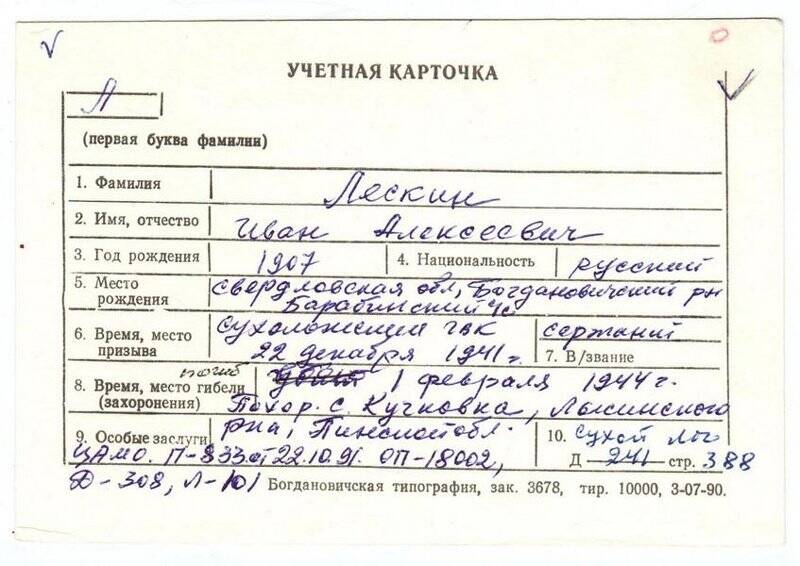 УЧЕТНАЯ КАРТОЧКА
Л
(первая буква фамилии)
1. Фамилия Лескин
2. Имя, отчество Иван Алексеевич
3. Год рождения 1907 4. Национальность русский
5. Место рождения Свердловская обл, Богдановичский рн
Барабинский с/с
6. Время, место призыва Сухоложским гвк
22 декабря 1941 г.
сержант
7. В/звание
погиб
8. Время, место гибели (захоронения) 1 февраля 1944 г.
Похор. с. Кучковка,
рна, Пинской обл.
9. Особые заслуги
10. Сухой Лог
Д 241 стр. 388
ЦАМО. П-833 от 22.10.91. ОП-18002,
Д-308, Л-101
Богдановичская типография, зак. 3678, тир. 10000, 3-07-90.